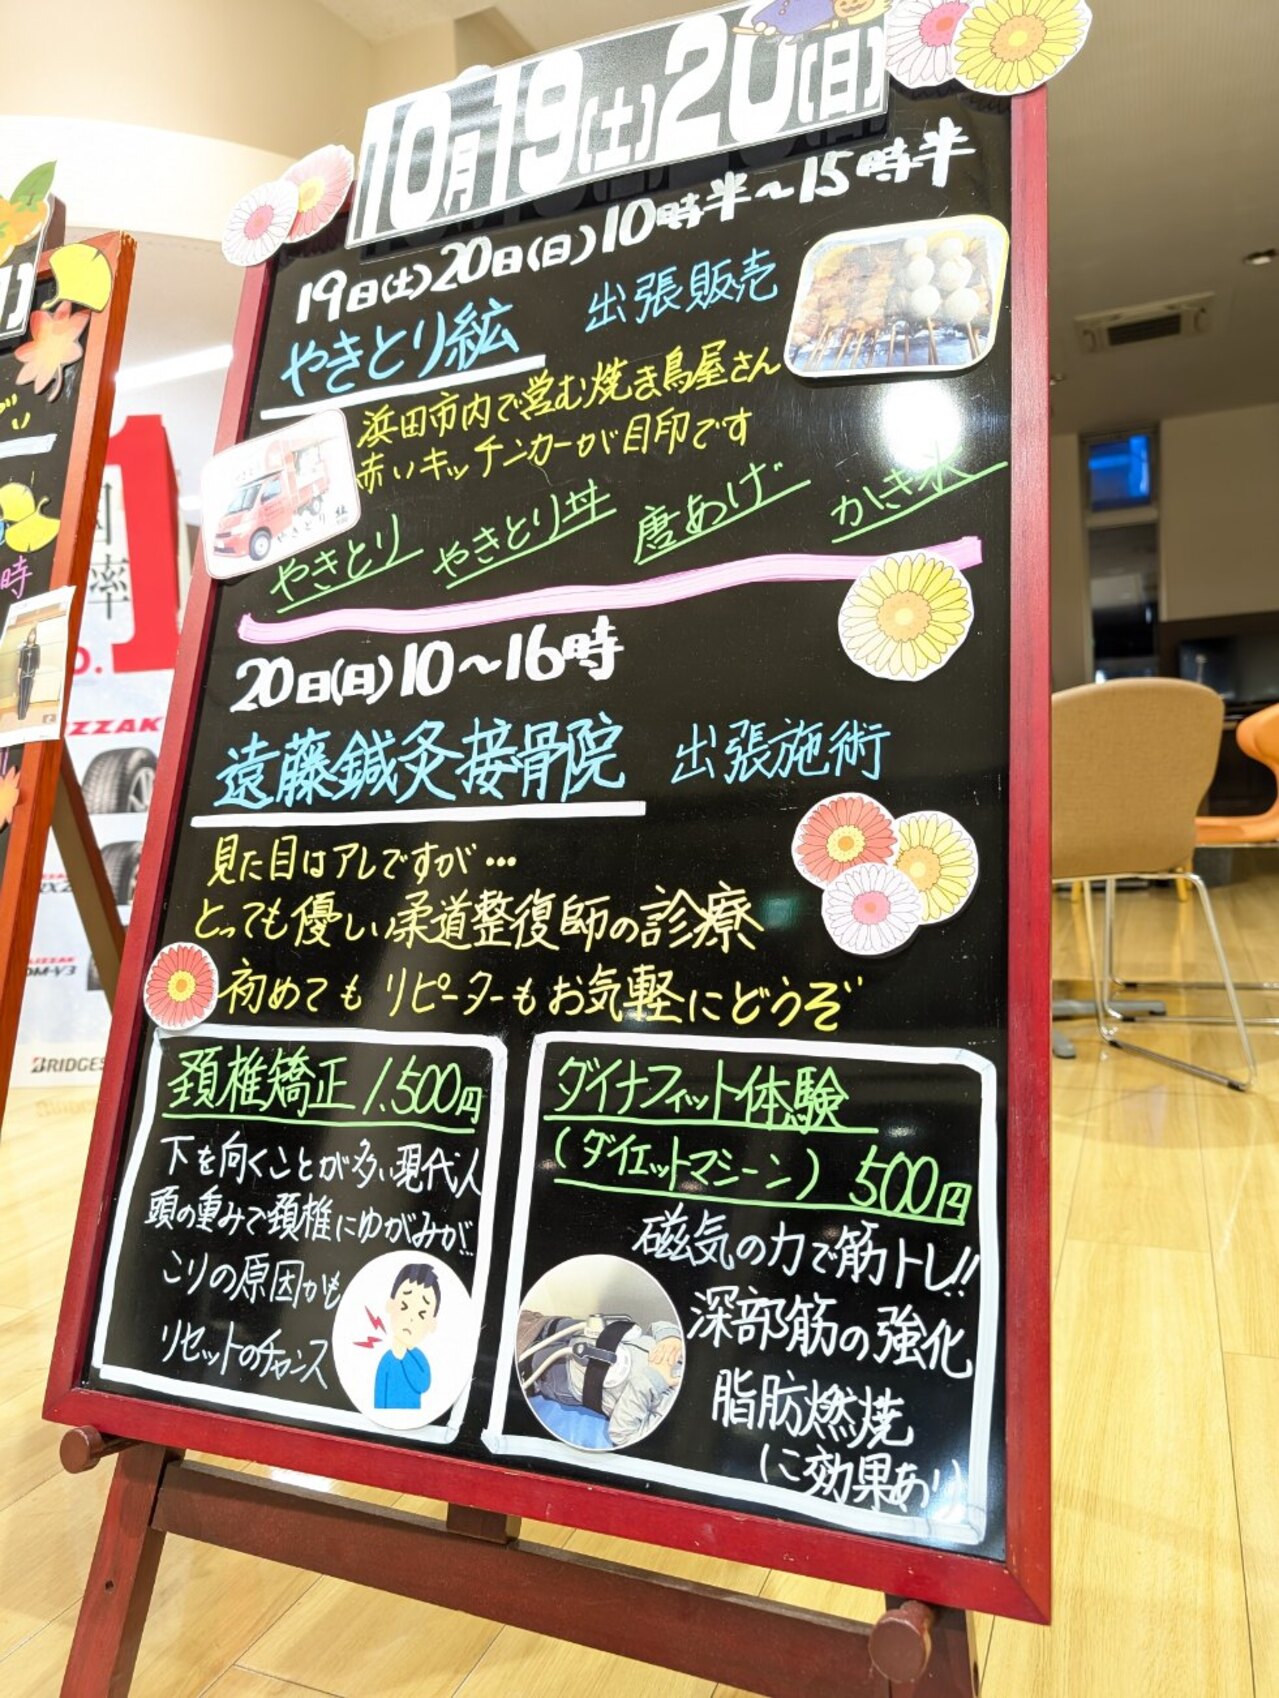 10月19(土)20(日)
19日(土)20日(日)10時半～15時半
やきとり絋 出張販売
浜田市内で営む焼き鳥屋さん
赤いキッチンカーが目印です
やきとり
やきとり丼
唐あげ
かき氷
20日(日)10～16時
遠藤鍼灸接骨院 出張施術
見た目はアレですが…
とっても優しい柔道整復師の診療
初めてもリピーターもお気軽にどうぞ
頚椎矯正 1,500円
下を向くことが多い現代人
頭の重みで頚椎にゆがみが!!
こりの原因かも
リセットのチャンス
ダイナフィット体験
(ダイエットマシーン) 500円
磁気の力で筋トレ!!
深部筋の強化
脂肪燃焼
に効果あり
時
率
1
BRIDGES